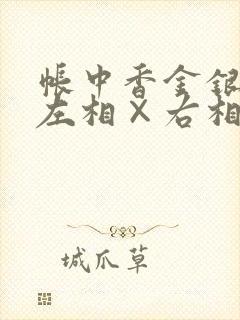 帐中香金银
左相×右相
城爪草